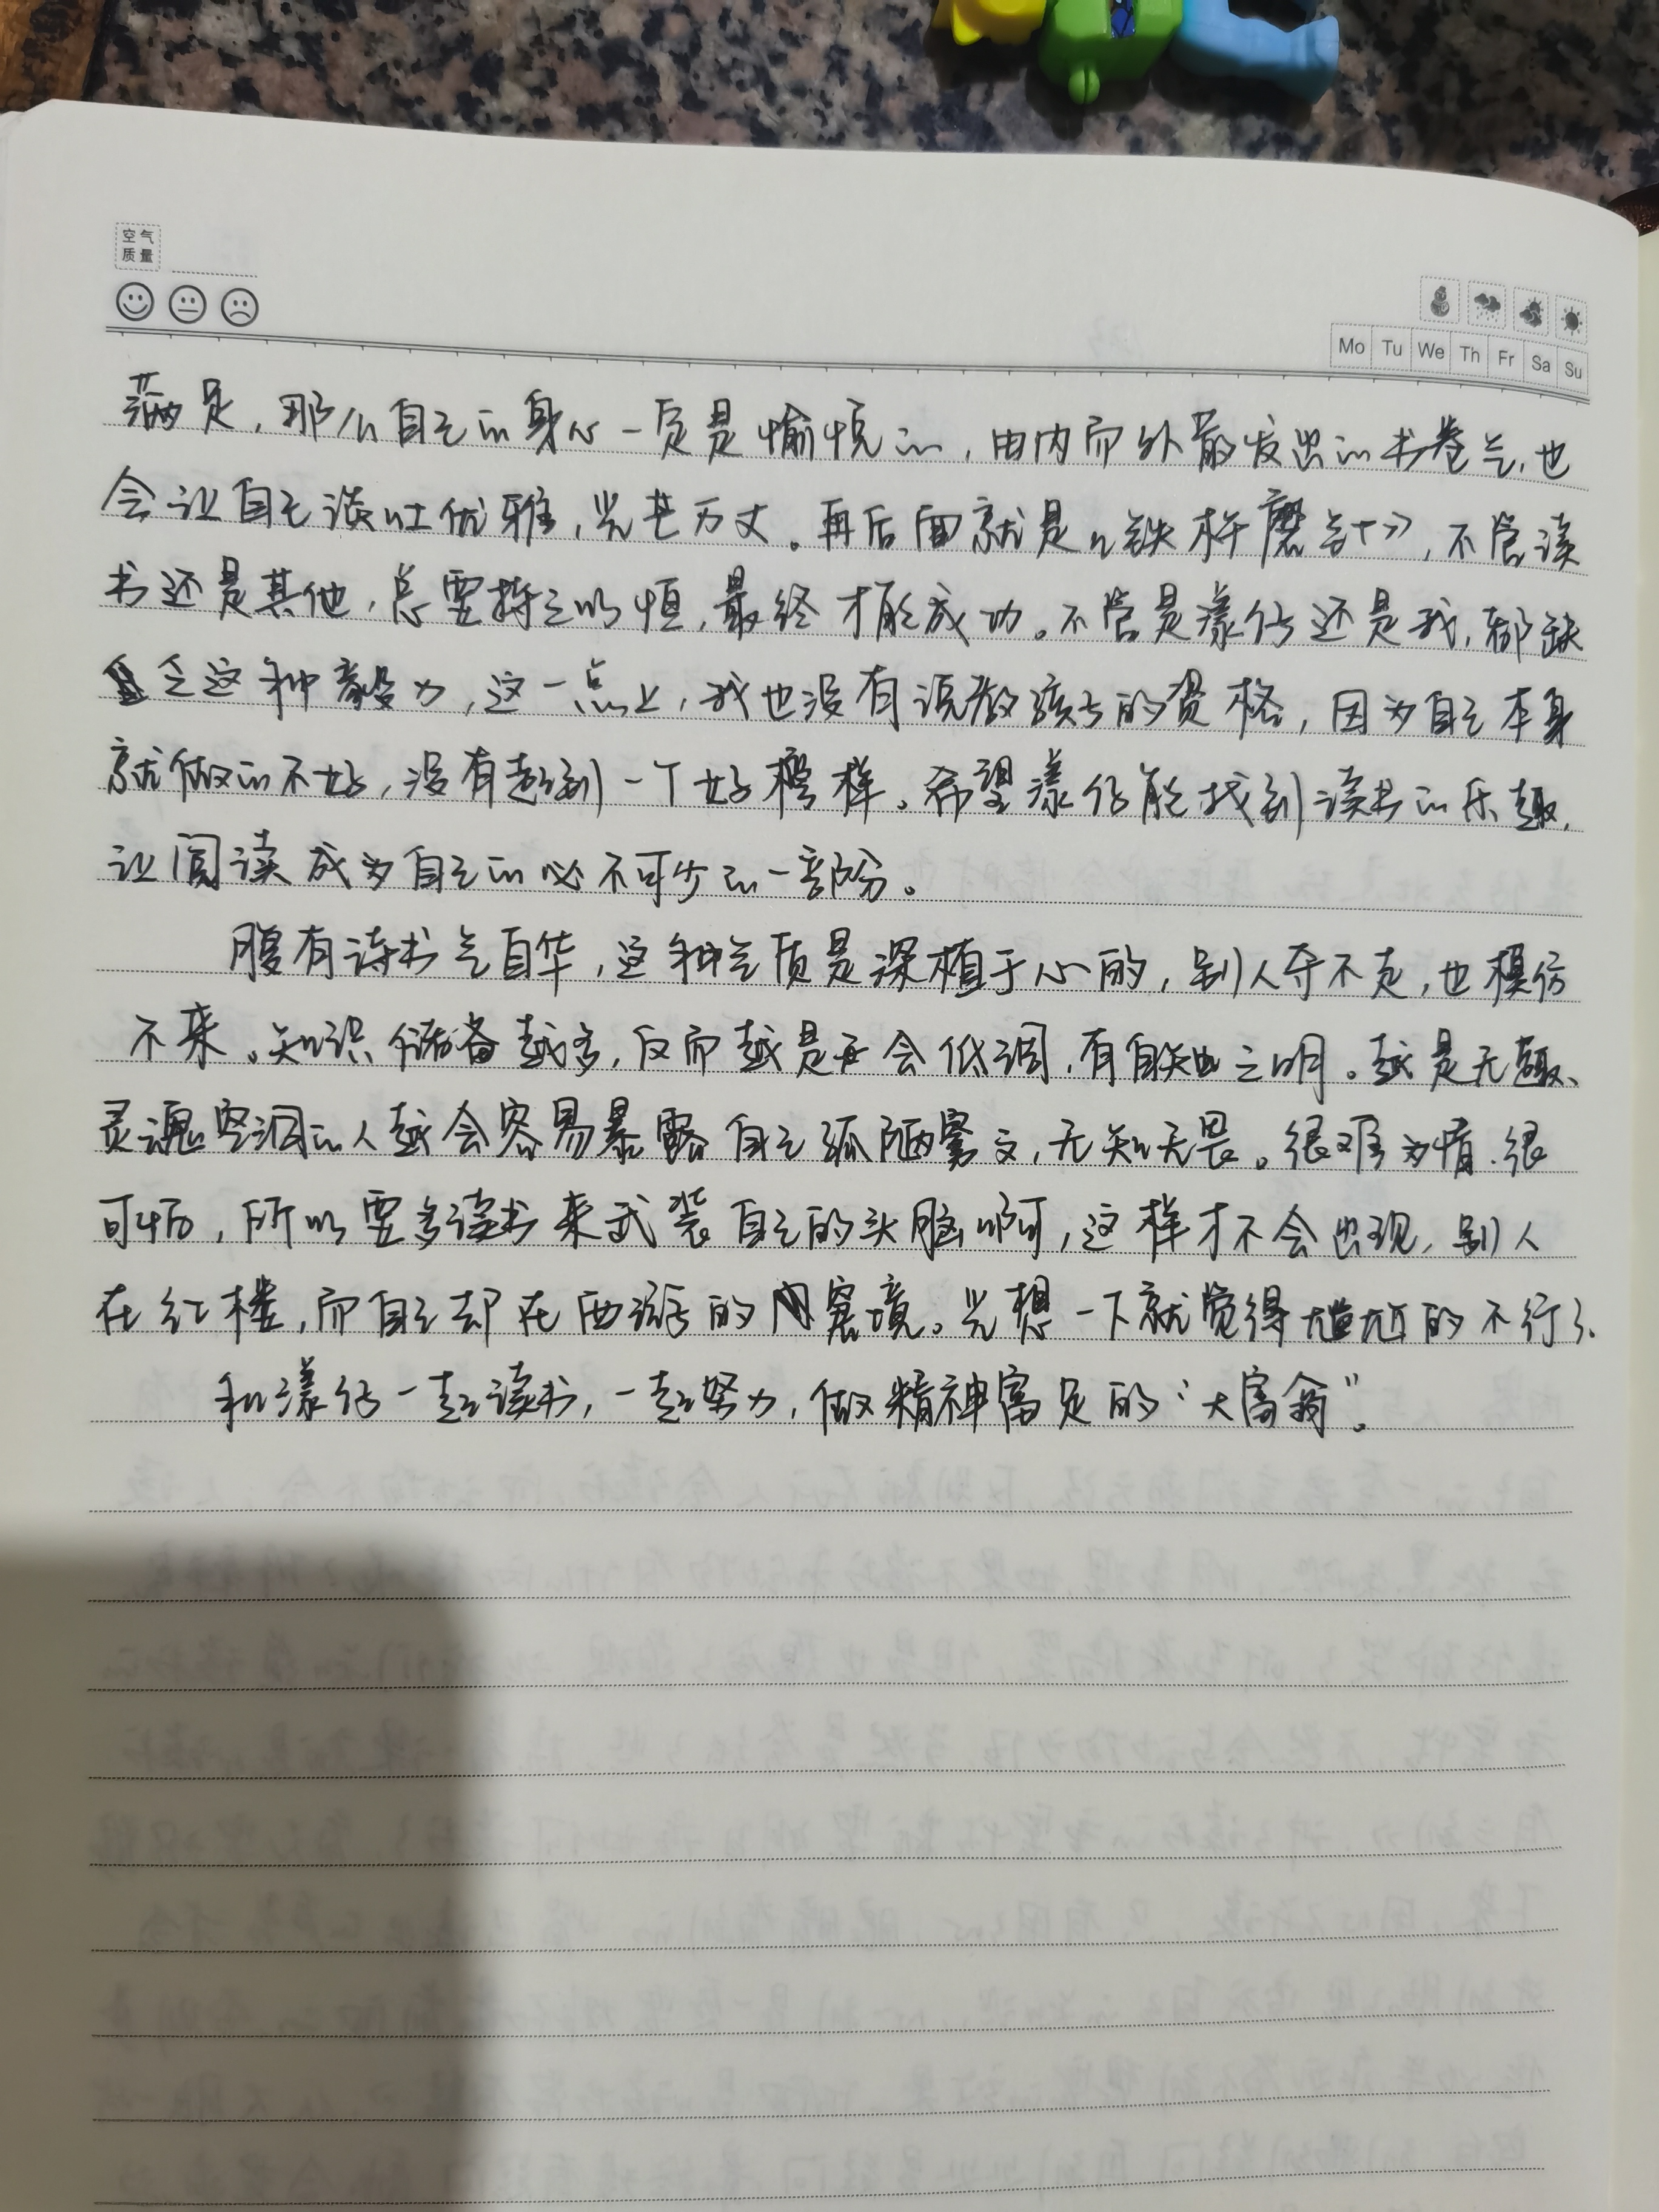 空气
质量
Mo Tu We Th Fr Sa Su
满足，那么自己的身心一定是愉悦的，由内而外散发出的书卷气，也
会让自己谈吐优雅，光芒万丈。再后面就是《铁杵磨针》，不管读
书还是其他，总要持之以恒，最终才能成功。不管是漾仔还是我，都缺
乏这种毅力，这一点上，我也没有说教孩子的资格，因为自己本身
就做的不好，没有起到一个好榜样。希望漾仔能找到读书的乐趣，
让阅读成为自己的必不可少的一部分。
腹有诗书气自华，这种气质是深植于心的，别人夺不走，也模仿
不来。知识储备越多，反而越是会低调，有自知之明。越是无趣、
灵魂空洞的人越会容易暴露自己孤陋寡文，无知无畏。很难为情，很
可怕，所以要多读书来武装自己的头脑啊，这样才不会出现，别人
在红楼，而自己却在西游的窘境。光想一下就觉得尴尬的不行了。
和漾仔一起读书，一起努力，做精神富足的“大富翁”。